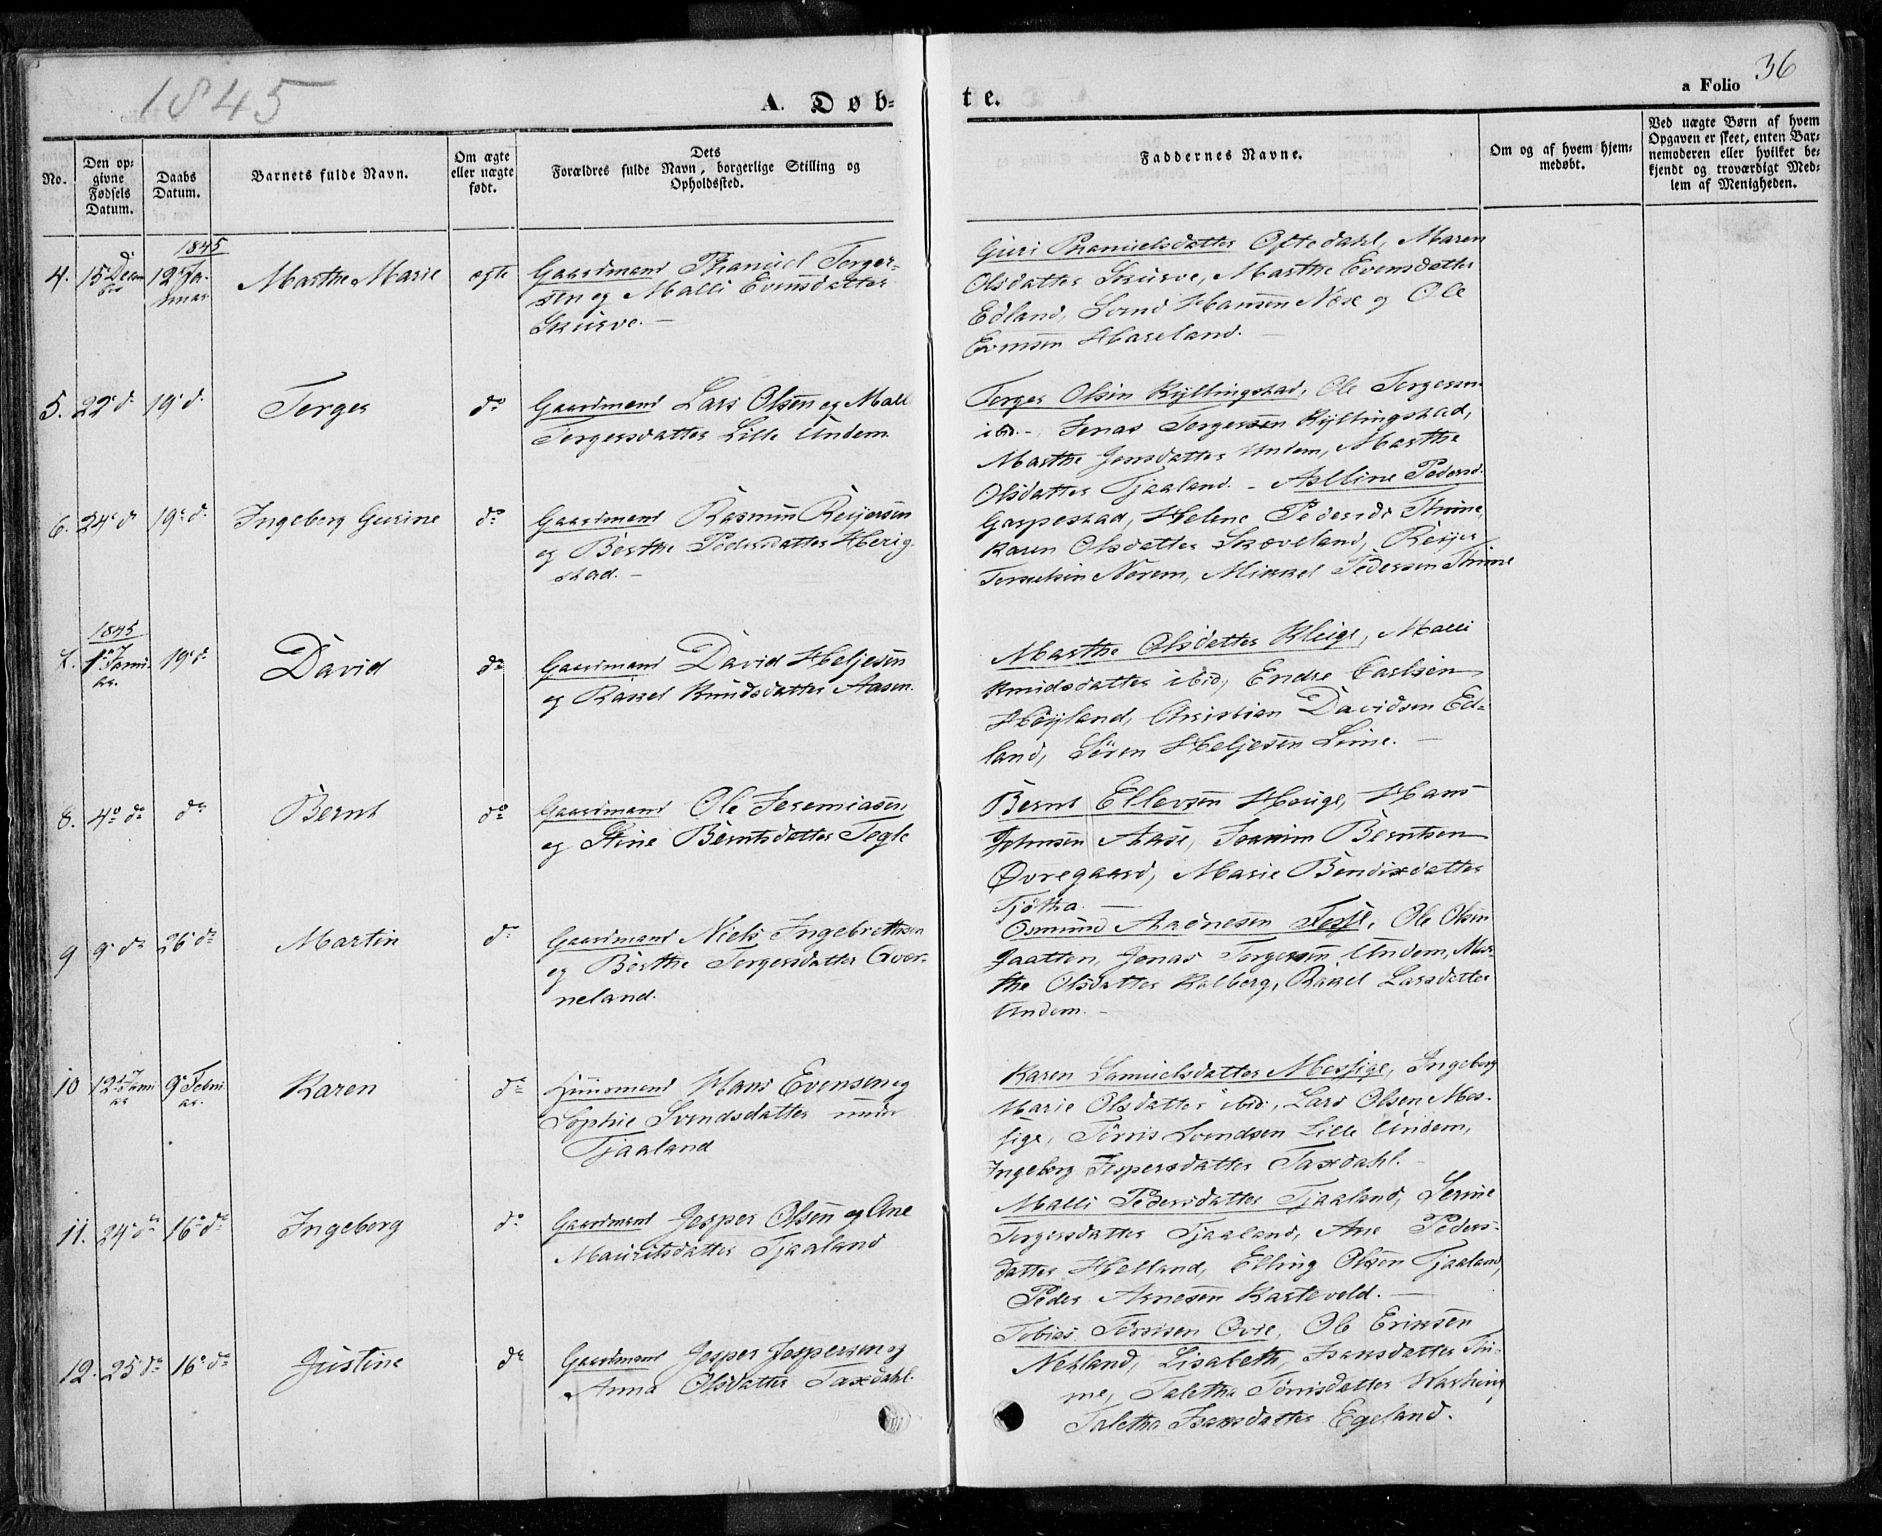 1845
A. Døb-
te.
a Folio
36
No.
Den op-
givne
Fødsels
Datum.
Daabs
Datum.
Barnets fulde Navn.
Om ægte
eller uægte
født.
Dets
Forældres fulde Navn, borgerlige Stilling og
Opholdssted.
Faddernes Navne.
Om og af hvem hjem-
medøbt.
Ved uægte Børn af hvem
Opgaven er skeet, enten Bar-
nemoderen eller hvilket be-
kjendt og troværdigt Med-
lem af Menigheden.
1845
4. 15 Decem 12 Ja- Marthe Marie ægte Gaardmand Thaniel Torger-
ber nuar sen og Malli Evensdatter
Skurve. —
Guri Thanielsdatter Oftedahl, Maren
Olsdatter Skurve, Marthe Evensdatter
Edland, Svend Hansen Næse og Ole
Evensen Haveland. —
5. 22 d. 19 d. Torger do Gaardmand Lars Olsen og Mall
Torgersdatter Lille Undem.
Torger Olsen Kyllingstad, Ole Torgersen
ibid. –, Jonas Torgersen Kyllingstad,
Marthe Jonsdatter Undem, Marthe
Olsdatter Tjaaland. –
6. 24 d. 19 d. Ingeborg Gurine do Gaardmand Rasmus Reijersen
og Berthe Pedersdatter Herig-
stad. –
Asline Pedersd.
Gaspestad, Helene Pedersdr Thime,
Karen Olsdatter Skæveland, Reijer
Norem, Mikkel Pedersen Thime
1845
7. 1 Janu- 19 d. David do Gaardmand David Heljesen
ar. og Rakel Knudsdatter Aasen.
Marthe Olsdatter Kleige, Malli
Knudsdatter ibid, Endre Carlsen
Høyland, Christian Davidsen Ed-
land, Søren Heljesen Lime. —
8. 4 do do Bernt do Gaardmand Ole Jeremiasen
og Stine Berntsdatter Tegle
Bernt Ellevsen Houge, Hans
Johnsen Aase, Joakim Berntsen
Øvregaard, Marie Bendixdatter
Tjøtha. —
9 9 do 26 do Martin do Gaardmand Niels Ingebrethsen
og Berthe Torgersdatter Qver-
neland.
Osmund Aadnesen Tesje, Ole Olsen
Gaatten, Jonas Torgersen Undem, Mar-
the Olsdatter Kalberg, Rakel Larsdatter
Undem. –
10 12 Janu- 9 Febru- Karen do Huusmand Hans Evensen og
ar ar. Sophie Svendsdatter under
Tjaaland
Karen Samuelsdatter Mossige, Ingeborg
Marie Olsdatter ibid, Lars Olsen Mos-
sige, Tørris Svendsen Lille Undem,
Ingeborg Jespersdatter Taxdahl. –
11. 24 do 16 do Ingeborg do Gaardmand Jesper Olsen og Ane
Mauritsdatter Tjaaland
Malli Pedersdatter Tjaaland, Serine
Torgersdatter Tjaaland, Ane Peders-
datter Helland, Elling Olsen Tjaaland,
Peder Arnesen Kartevold. —
12. 25 do 16 do Justine do Gaardmand Jesper Jespersen og
Anna Olsdatter Taxdahl.
Tobias Tørrisen Øvre, Ole Eriksen
Netland, Lisabeth Isaksdatter Thi-
me, Taletha Tørrisdatter
Taletha Isaksdatter Egeland.